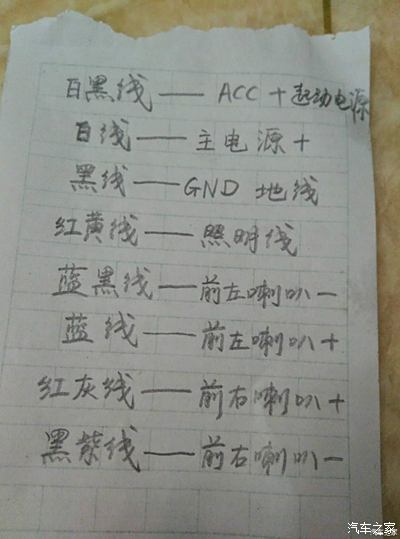 白黑线——ACC+起动电源
白线——主电源+
黑线——GND 地线
红黄线——照明线
蓝黑线——前左喇叭-
蓝线——前左喇叭+
红灰线——前右喇叭+
黑紫线——前右喇叭-
汽车之家